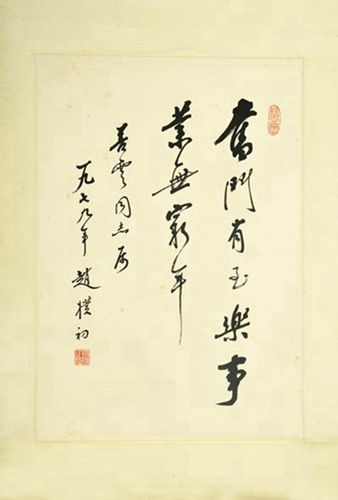 奮鬥有至樂事
業無窮年
善雲同志屬
一九七九年 趙樸初